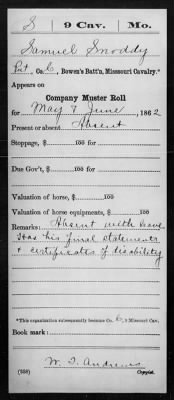 S | 9 Cav. | Mo.
Samuel Snoddy
Pvt., Co. C, Bowen's Batt'n, Missouri Cavalry.*
Appears on
Company Muster Roll
for May & June, 1862
Present or absent Absent
Stoppage, $ 100 for
Due Gov't, $ 100 for
Valuation of horse, $ 100
Valuation of horse equipments, $ 100
Remarks: Absent with leave
Has his final statements
& certificates of disability
*This organization subsequently became Co. C, 9 Missouri Cav.
Book mark:
W. T. Andrews
(358) Copyist.